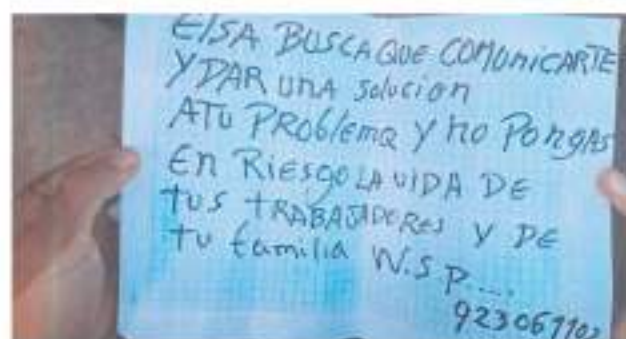 ElSA BUSCA QUE COMUNICARTE
Y DAR UNA solucion
A TU PROblEMa Y no PongAS
En RiesgO LA VIDA DE
tus tRABAJADORES Y DE
tu familia W.S P....